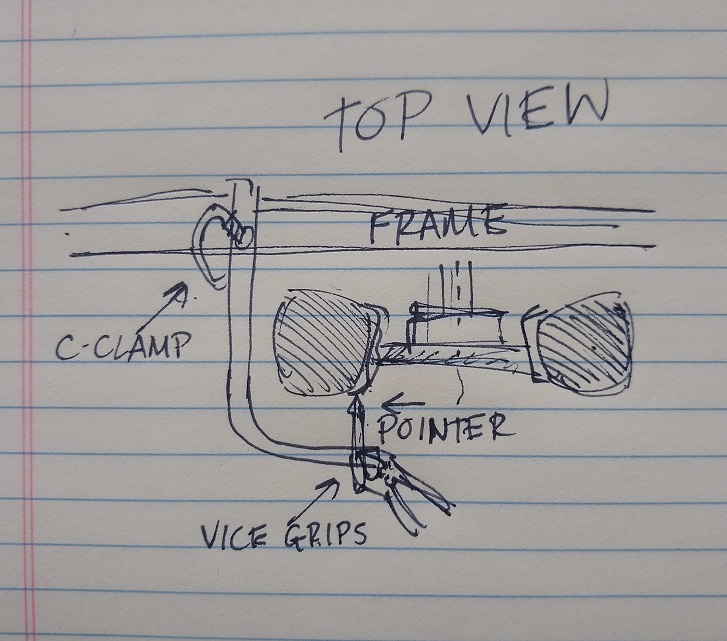 TOP VIEW
FRAME
C-CLAMP
POINTER
VICE GRIPS